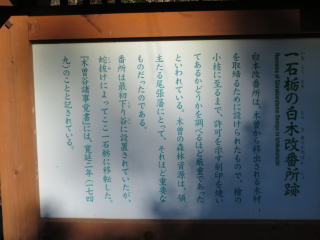 一石栃の白木改番所跡
白木改番所は、木曽から移出される木材
を取締るために設けられたもので、檜の
小枝に至るまで、許可を示す刻印を焼い
てあるかどうかを調べるほど厳重であった
といわれている。木曽の森林資源は、領
主たる尾張藩にとって、それほど重要な
ものだったのである。
番所は最初下り谷に設置されていたが、
蛇抜けによってここ一石栃に移転した。
『木曽谷諸事覚書』には、寛延二年(一七四
九)のことと記されている。